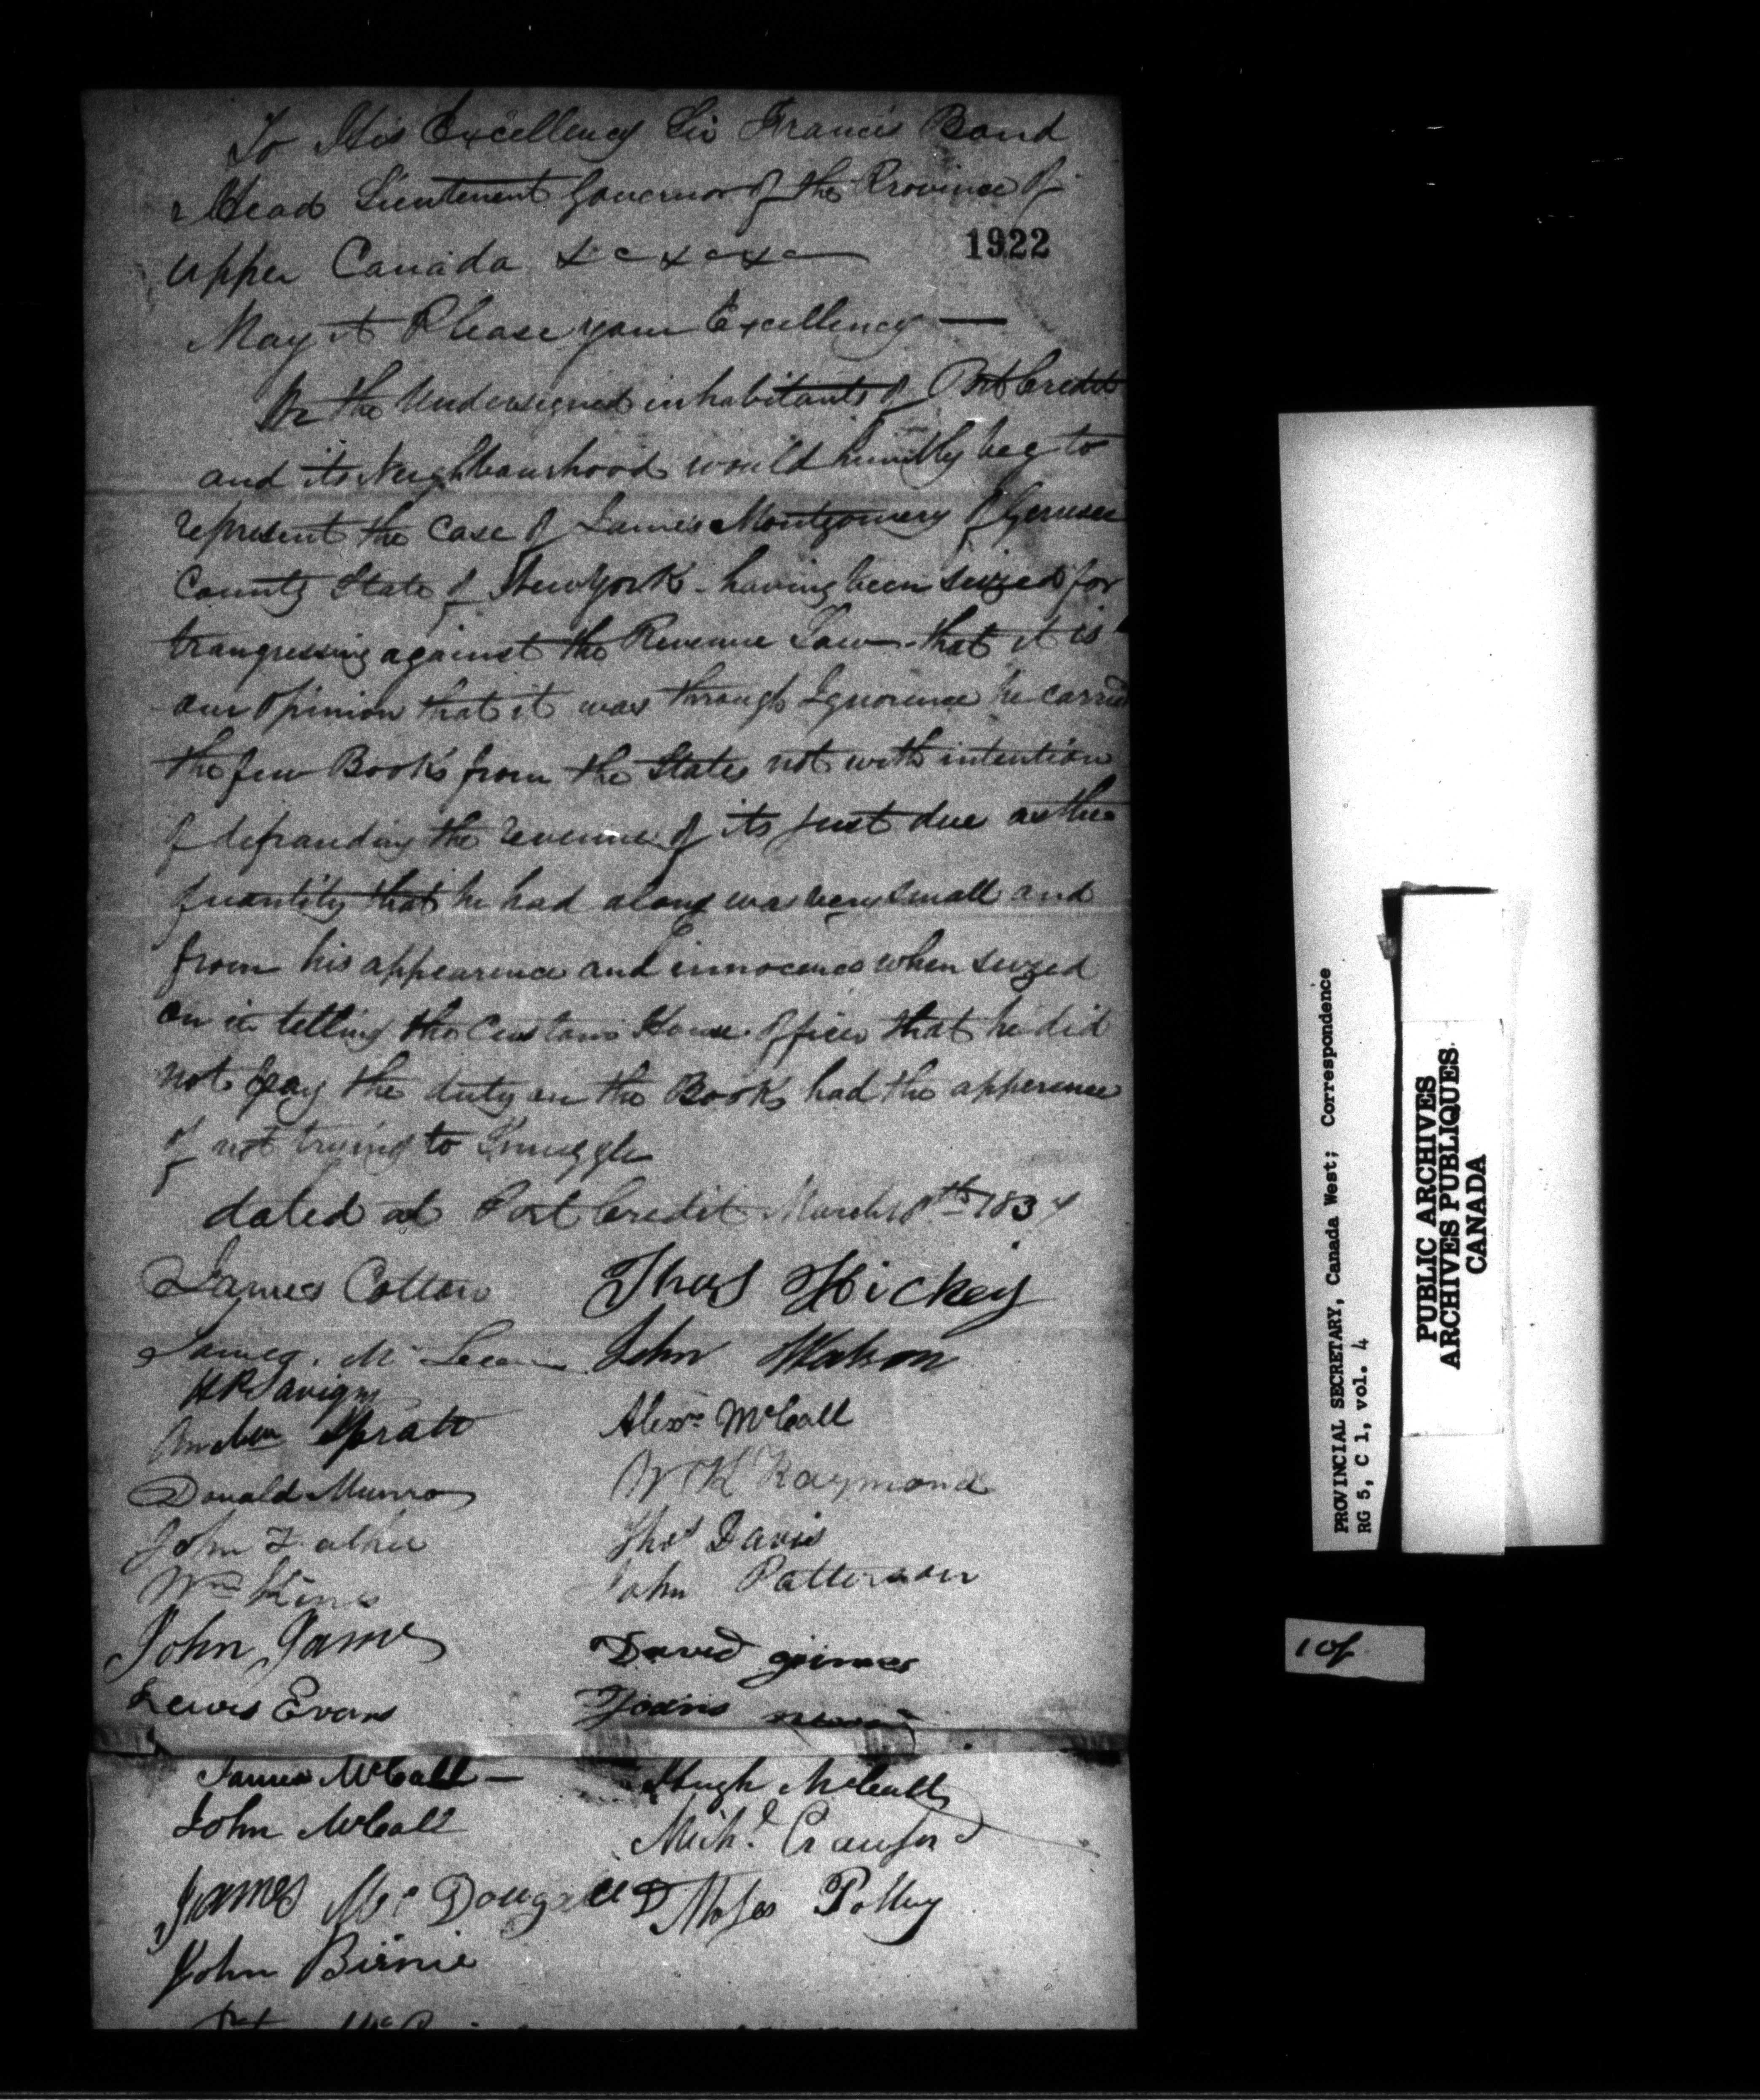 To His Excellency Sir Francis Bond
Head Lieutenent Governor of the Province of
1922
Upper Canada &c &c &c
May it Please your Excellency —
We the Undersigned inhabitants of Port Credit
and its Neighbourhood would humbly beg to
represent the Case of James Montgomery of Genesee
County State of New York - having been seized for
trangressing against the Revenue Law - that it is
our opinion that it was through Ignorence he carried
the few Books from the States not with intention
of defrauding the revenue of its just due as the
quantity that he had along was very small and
from his appearence and innocence when seized
on in telling the Custom House officer that he did
not pay the duty on the Books had the apperence
of not trying to Smuggle
dated at Port Credit March 18th 1837
James Cotton Thos Hickey
James Mc John Watson
H R Savigny
Andrew Spratt Alexr McCall
Donald Munro W K Raymond
John Thos Davis
Wm John Patterson
John James David
Lewis Evans
James McCall — Hugh McCall
John McCall Michl Crawford
James McDougall Moses Polley
John Birnie
PROVINCIAL SECRETARY, Canada West; Correspondence
RG 5, C 1, vol. 4
PUBLIC ARCHIVES
ARCHIVES PUBLIQUES
CANADA
1 of